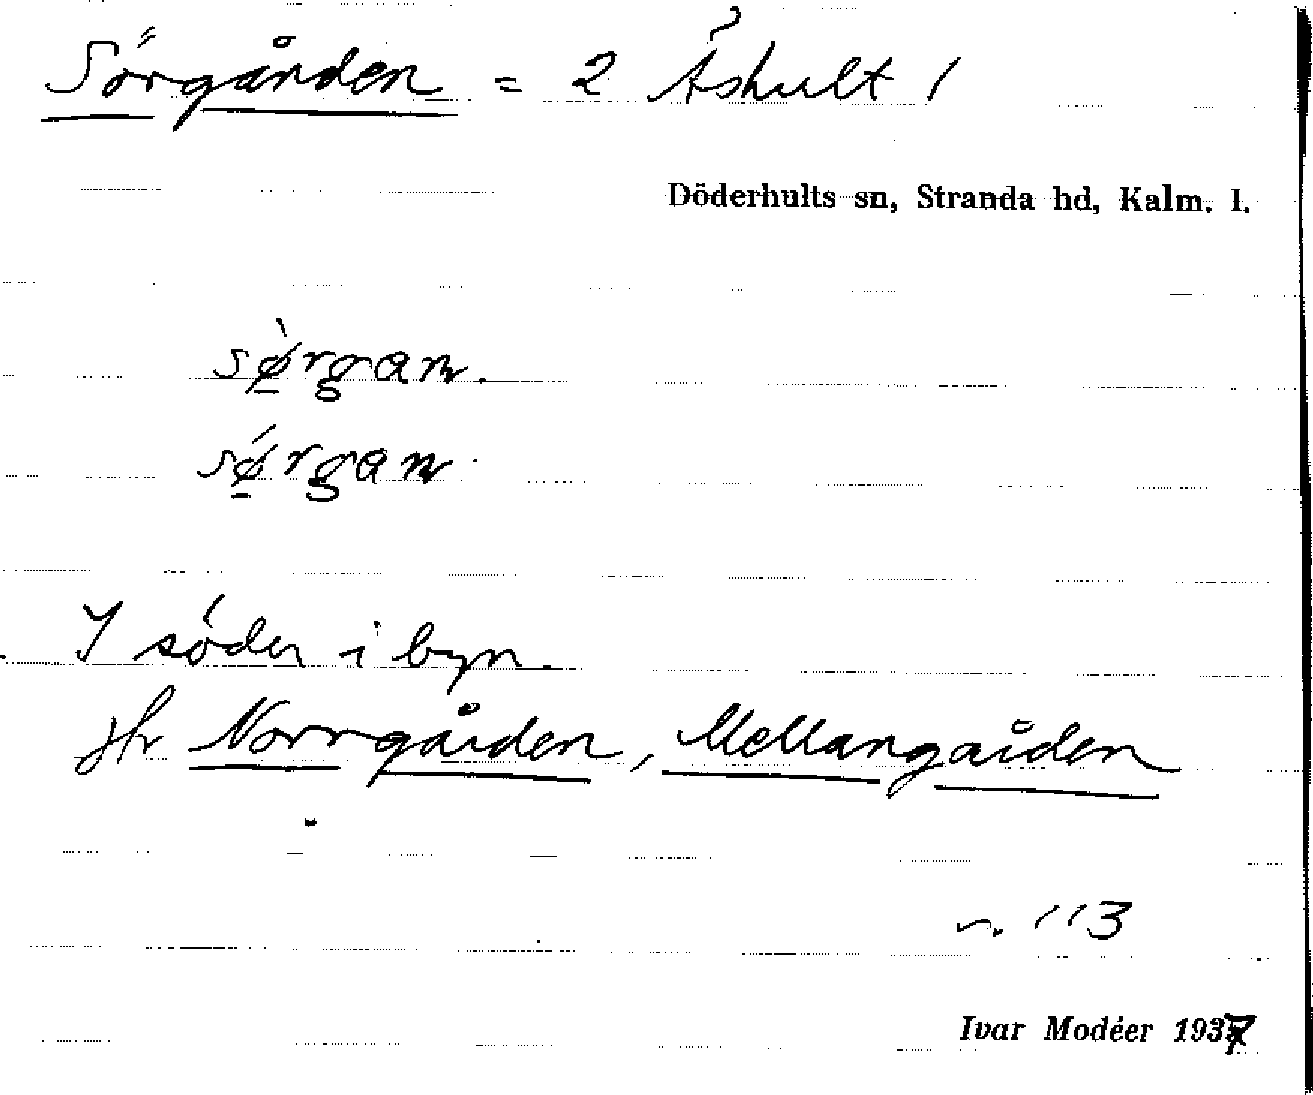 Sörgården = 2 Åshult 1
Döderhults sn, Stranda hd, Kalm. l.
sø̀rgan.
sǿrgan.
I söder i byn.
jfr Norrgården, Mellangården
n. 113
Ivar Modéer 1937